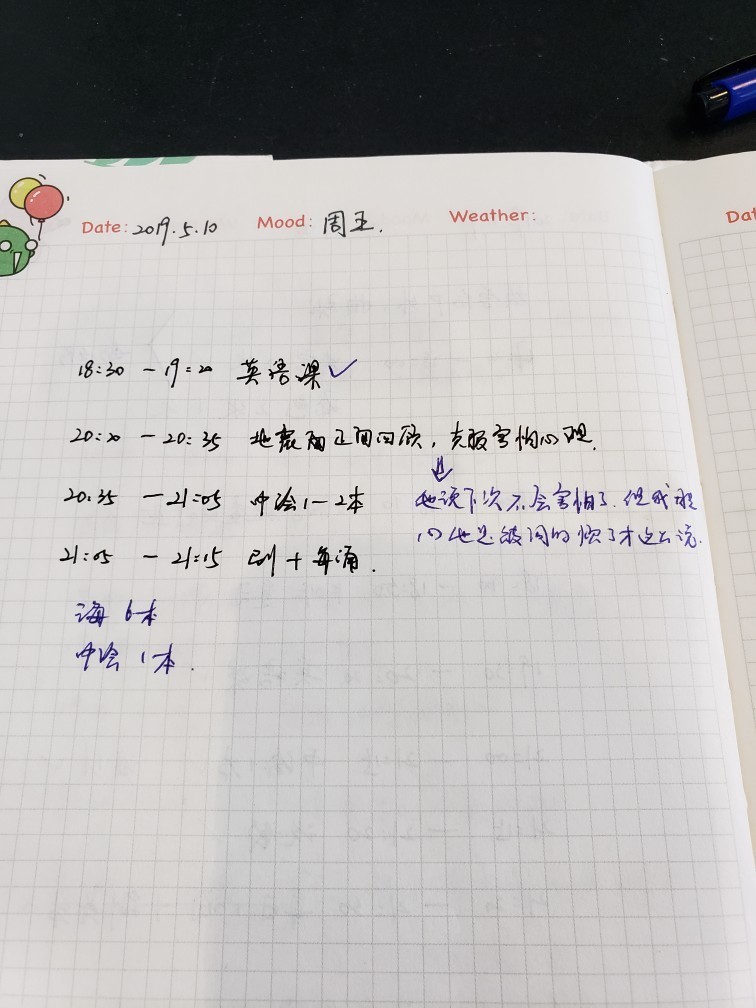 Date: 2019.5.10 Mood: 周五. Weather: Dat
18:30 — 19:20 英语课 ✓
20:20 — 20:35 地震 正面回顾，克服害怕心理.
20:35 — 21:05 中绘 1-2本 他说下次不会害怕了.但我
他是被问的烦了才这么说.
21:05 — 21:15 刷 + 每涌.
海 6本
中绘 1本.